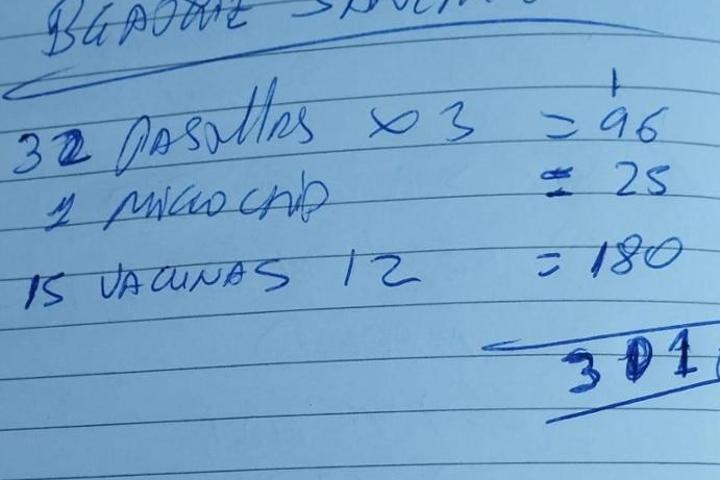 32 PASTILLAS x 3 = 96
1 MICROCHIP = 25
15 VACUNAS 12 = 180
301